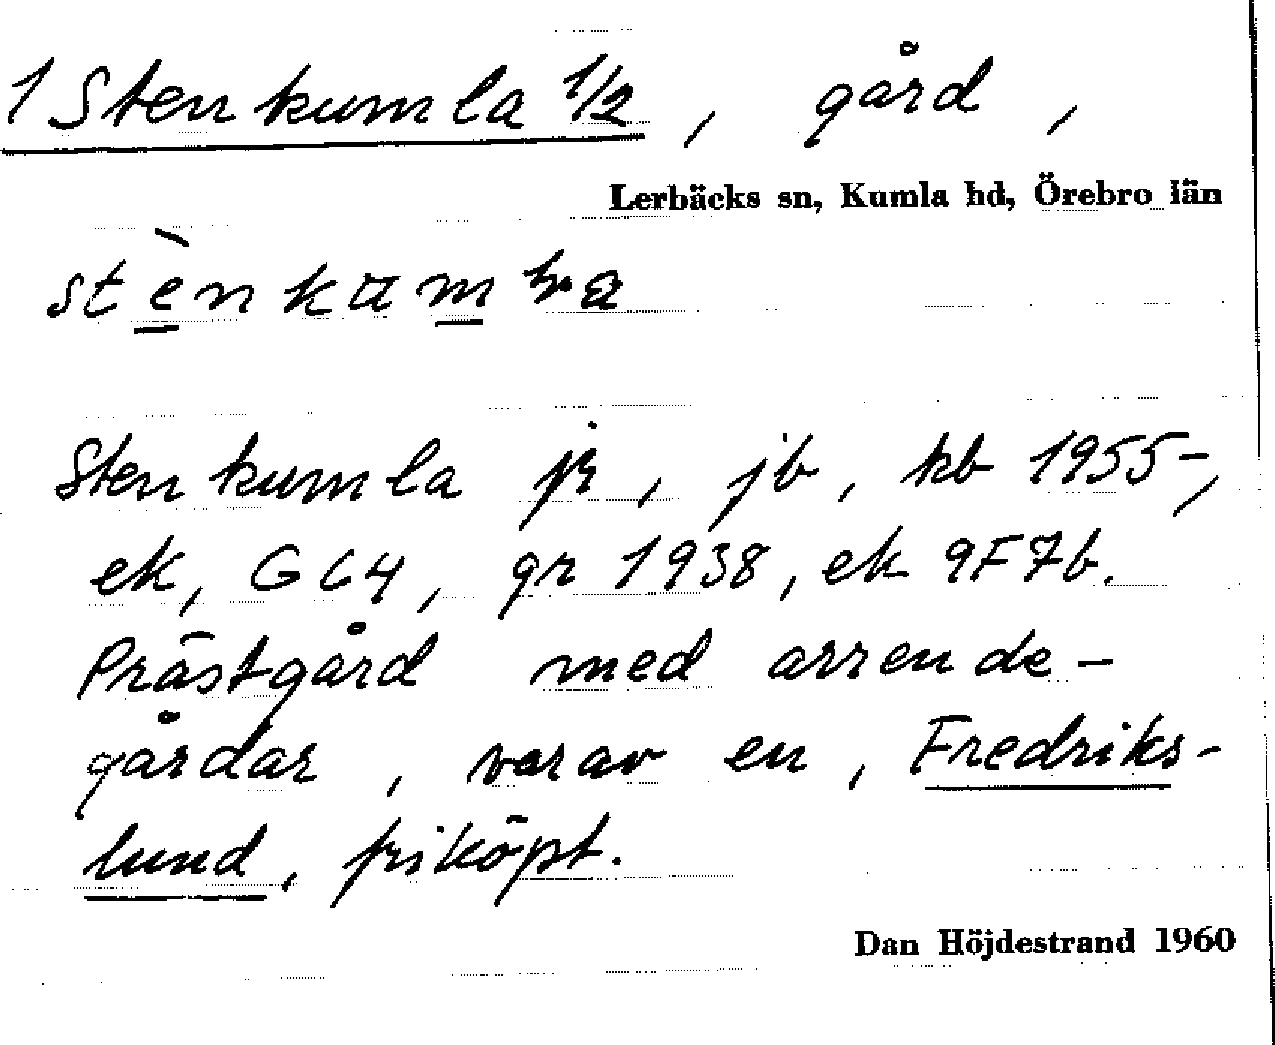 1 Stenkumla 1/2, gård,
Lerbäcks sn, Kumla hd, Örebro län
Stenkumla jr, jb, kb 1955-,
ek, GC4, gr 1938, ek 9F7b.
Prästgård med arrende-
gårdar, varav en, Fredriks-
lund, friköpt.
Dan Höjdestrand 1960